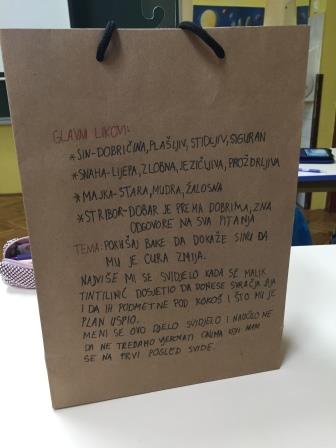 GLAVNI LIKOVI:
*SIN-DOBRIČINA, PLAŠLJIV, STIDLJIV, SIGURAN
*SNAHA-LIJEPA, ZLOBNA, JEZIČLJIVA, PROŽDRLJIVA
*MAJKA-STARA, MUDRA, ŽALOSNA
*STRIBOR-DOBAR JE PREMA DOBRIMA, ZNA
ODGOVORE NA SVA PITANJA
TEMA: POKUŠAJ BAKE DA DOKAŽE SINU DA
MU JE CURA ZMIJA.
NAJVIŠE MI SE SVIDJELO KADA SE MALIK
TINTILINIĆ DOSJETIO DA DONESE SVRAČJA JAJA
I DA IH PODMETNE POD KOKOŠ I ŠTO MU JE
PLAN USPIO.
MENI SE OVO DJELO SVIDJELO I NAUČILO ME
DA NE TREBAMO VJEROVATI ONIMA KOJI NAM
SE NA PRVI POGLED SVIDE.